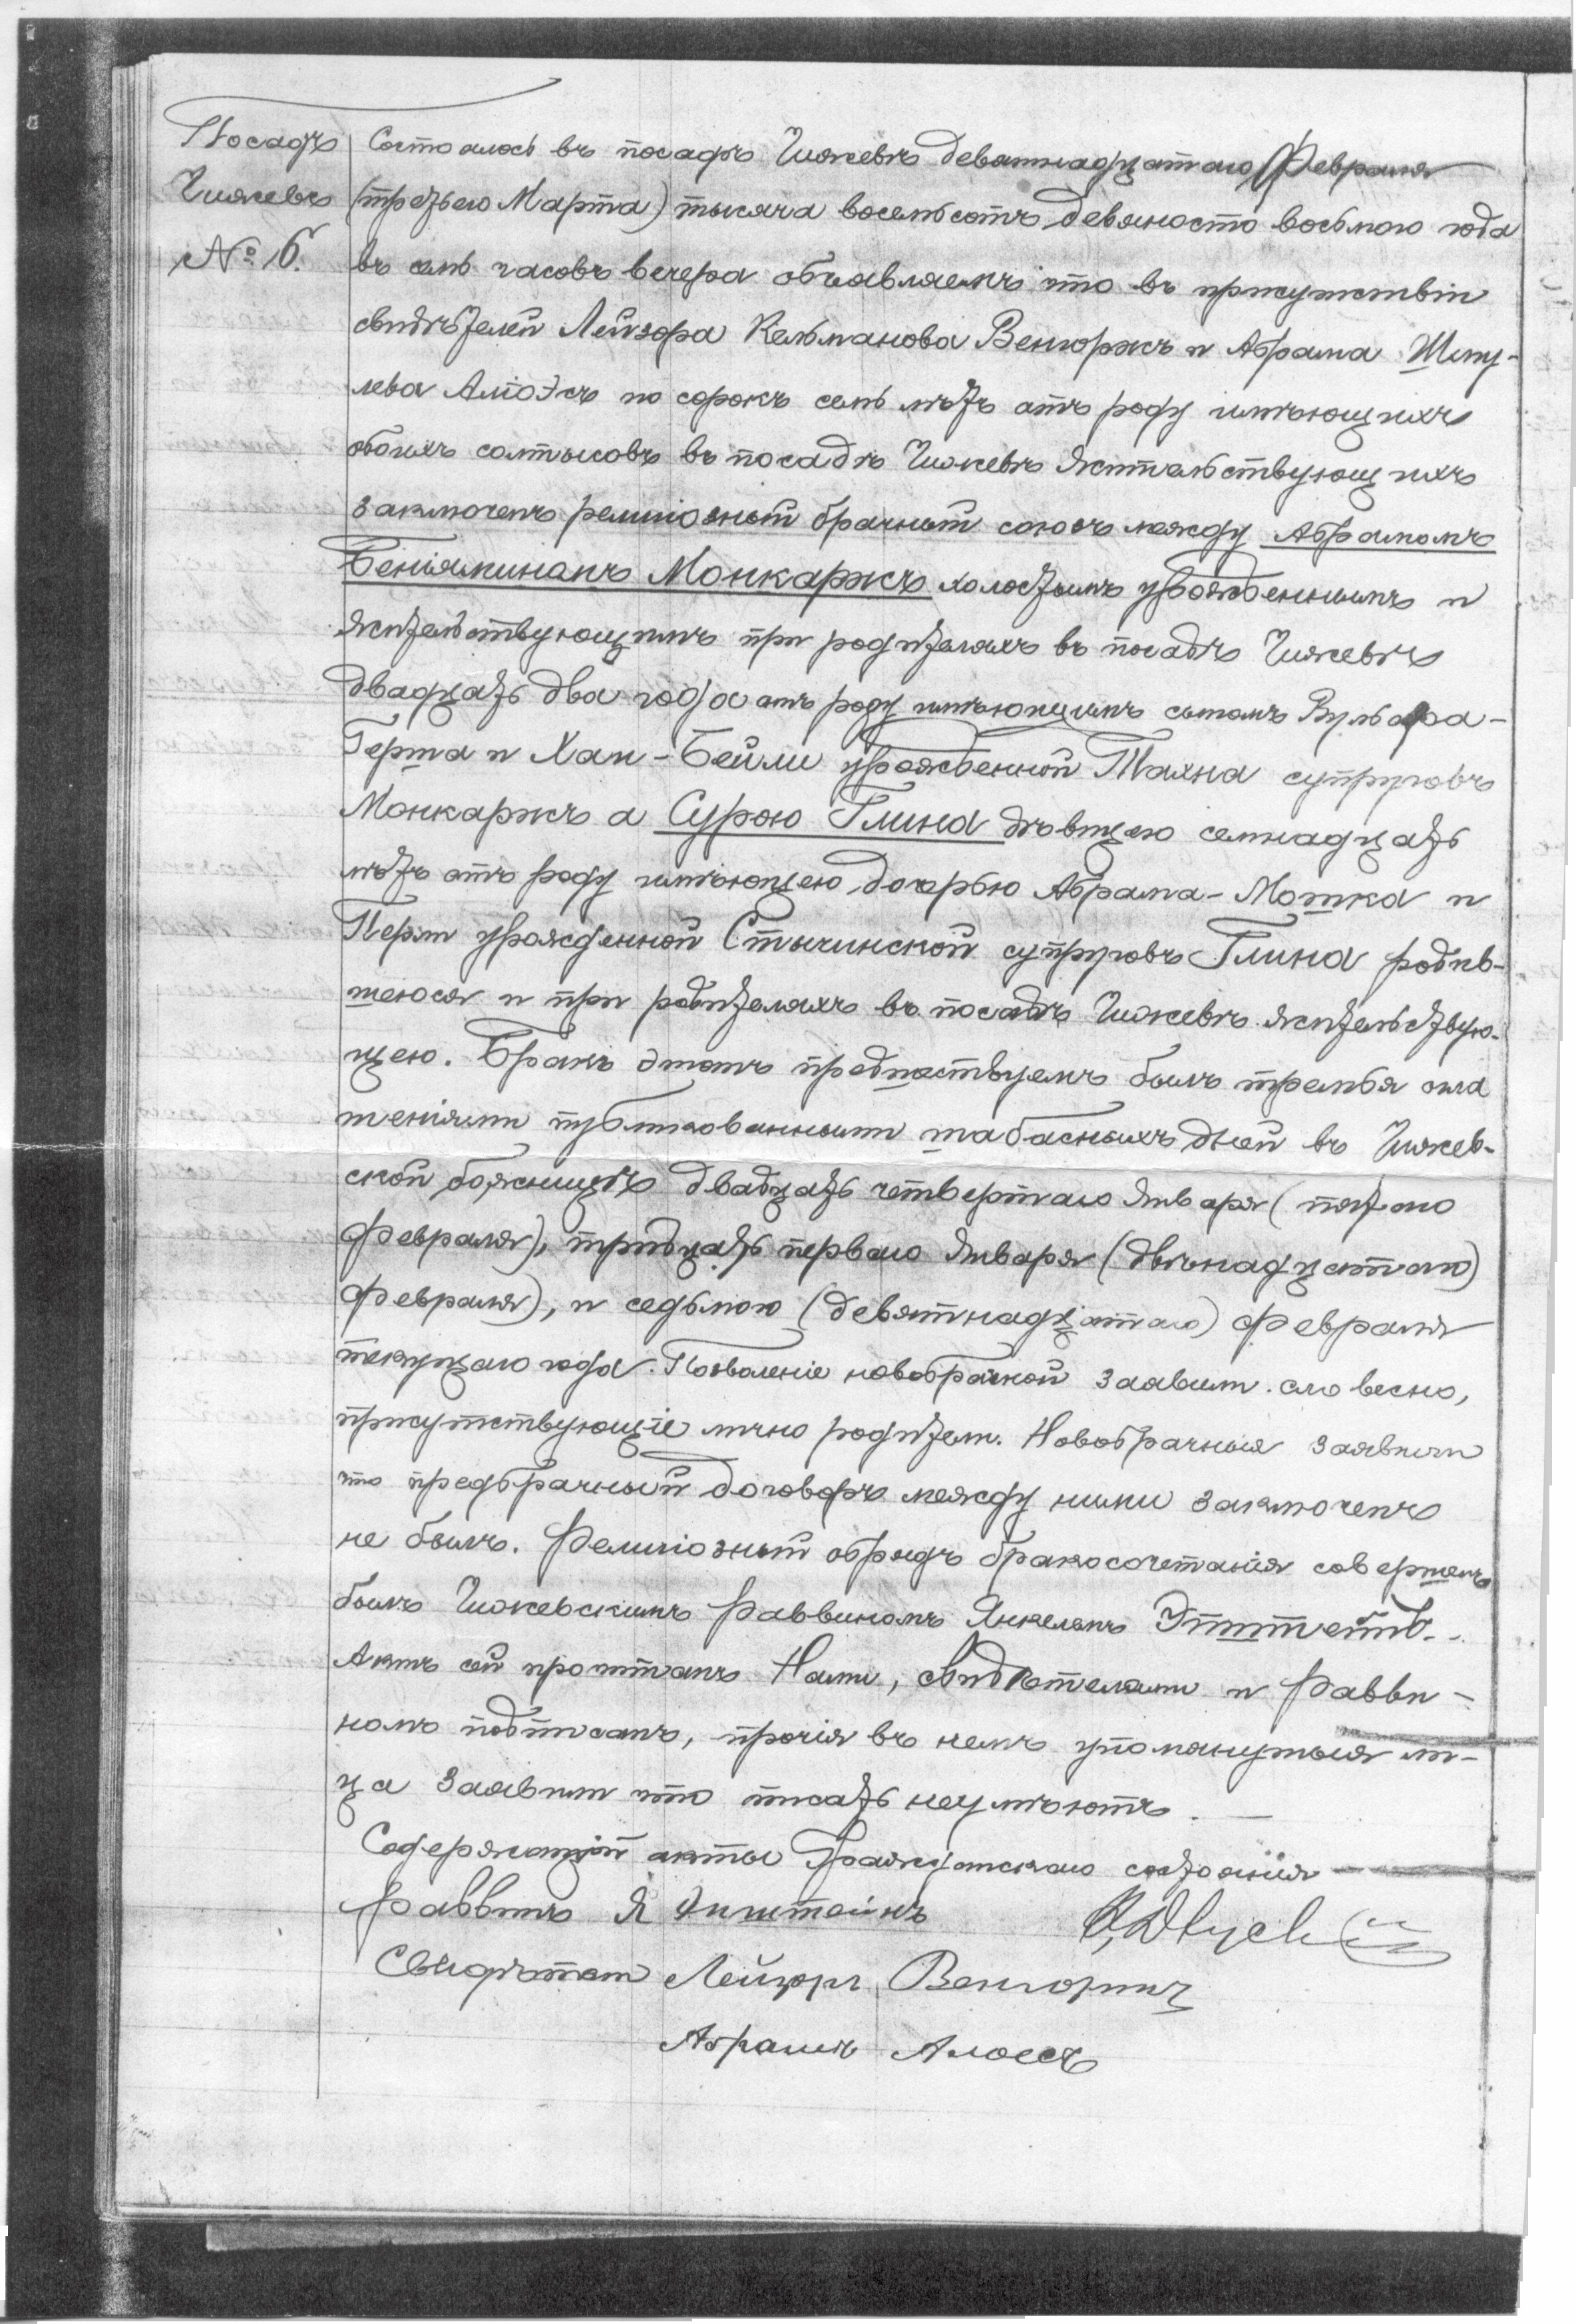 Посадъ
Чижевъ
№ 6.
Состоялось въ посадѣ Чижевѣ девятнадцатаго Февраля
(третьего Марта) тысяча восемьсотъ девяносто восьмого года
въ семь часовъ вечера объявляемъ что въ присутствіи
свидѣтелей Лейзора Кельманова Венгоржъ и Абрама Шму-
лева Алюэсъ по сорокъ семь лѣтъ отъ роду имѣющихъ
обоихъ солтысовъ въ посадѣ Чижевѣ жительствующихъ
заключенъ религіозный брачный союзъ между Абрамомъ
Беніяминомъ Монкаржъ холостымъ урожденнымъ и
жительствующимъ при родителяхъ въ посадѣ Чижевѣ
двадцать два года отъ роду имѣющимъ сыномъ Вульфа-
Герша и Хаи-Бейли урожденной Таяна супруговъ
Монкаржъ а Сурою Глина дѣвицею семнадцать
лѣтъ отъ роду имѣющею дочерью Абрама-Мошка и
Перли урожденной Стычинской супруговъ Глина родив-
шеюся и при родителяхъ въ посадѣ Чижевѣ жительствую-
щею. Бракъ этотъ предшествуемъ былъ тремья огла
шеніями публикованными шабасныхъ дней въ Чижев-
ской божницѣ двадцать четвертаго Января (пятого
Февраля), тридцать перваго Января (двѣнадцатаго
Февраля), и седьмого (девятнадцатаго) Февраля
текущаго года. Позволеніе новобрачной заявили словесно,
присутствующіе лично родители. Новобрачныя заявили
что предбрачный договоръ между ними заключенъ
не былъ. Религіозный обрядъ бракосочетанія совершенъ
былъ Чижевскимъ Раввиномъ Янкелемъ Эпштейнъ.
Актъ сей прочитанъ Нами, свидѣтелями и Равви-
номъ подписанъ, прочія въ немъ упомянутыя ли-
ца заявили что писать неумѣютъ.
Содержащій акты Гражданскаго состоянія
Раввинъ Я Эпштейнъ
Свидѣтели Лейзоръ Венгоржъ
Абрамъ Алюесъ